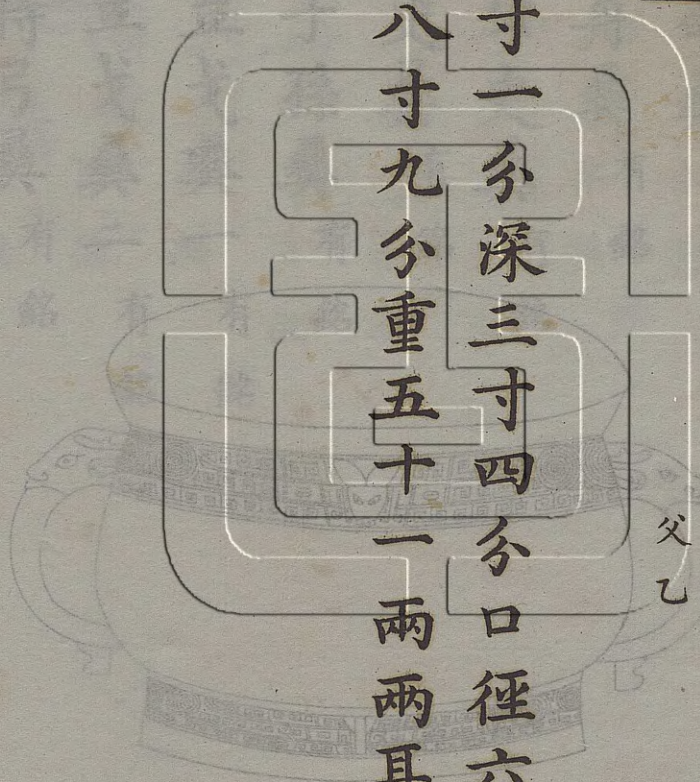 父乙
寸一分深三寸四分口徑六
八寸九分重五十一兩兩耳